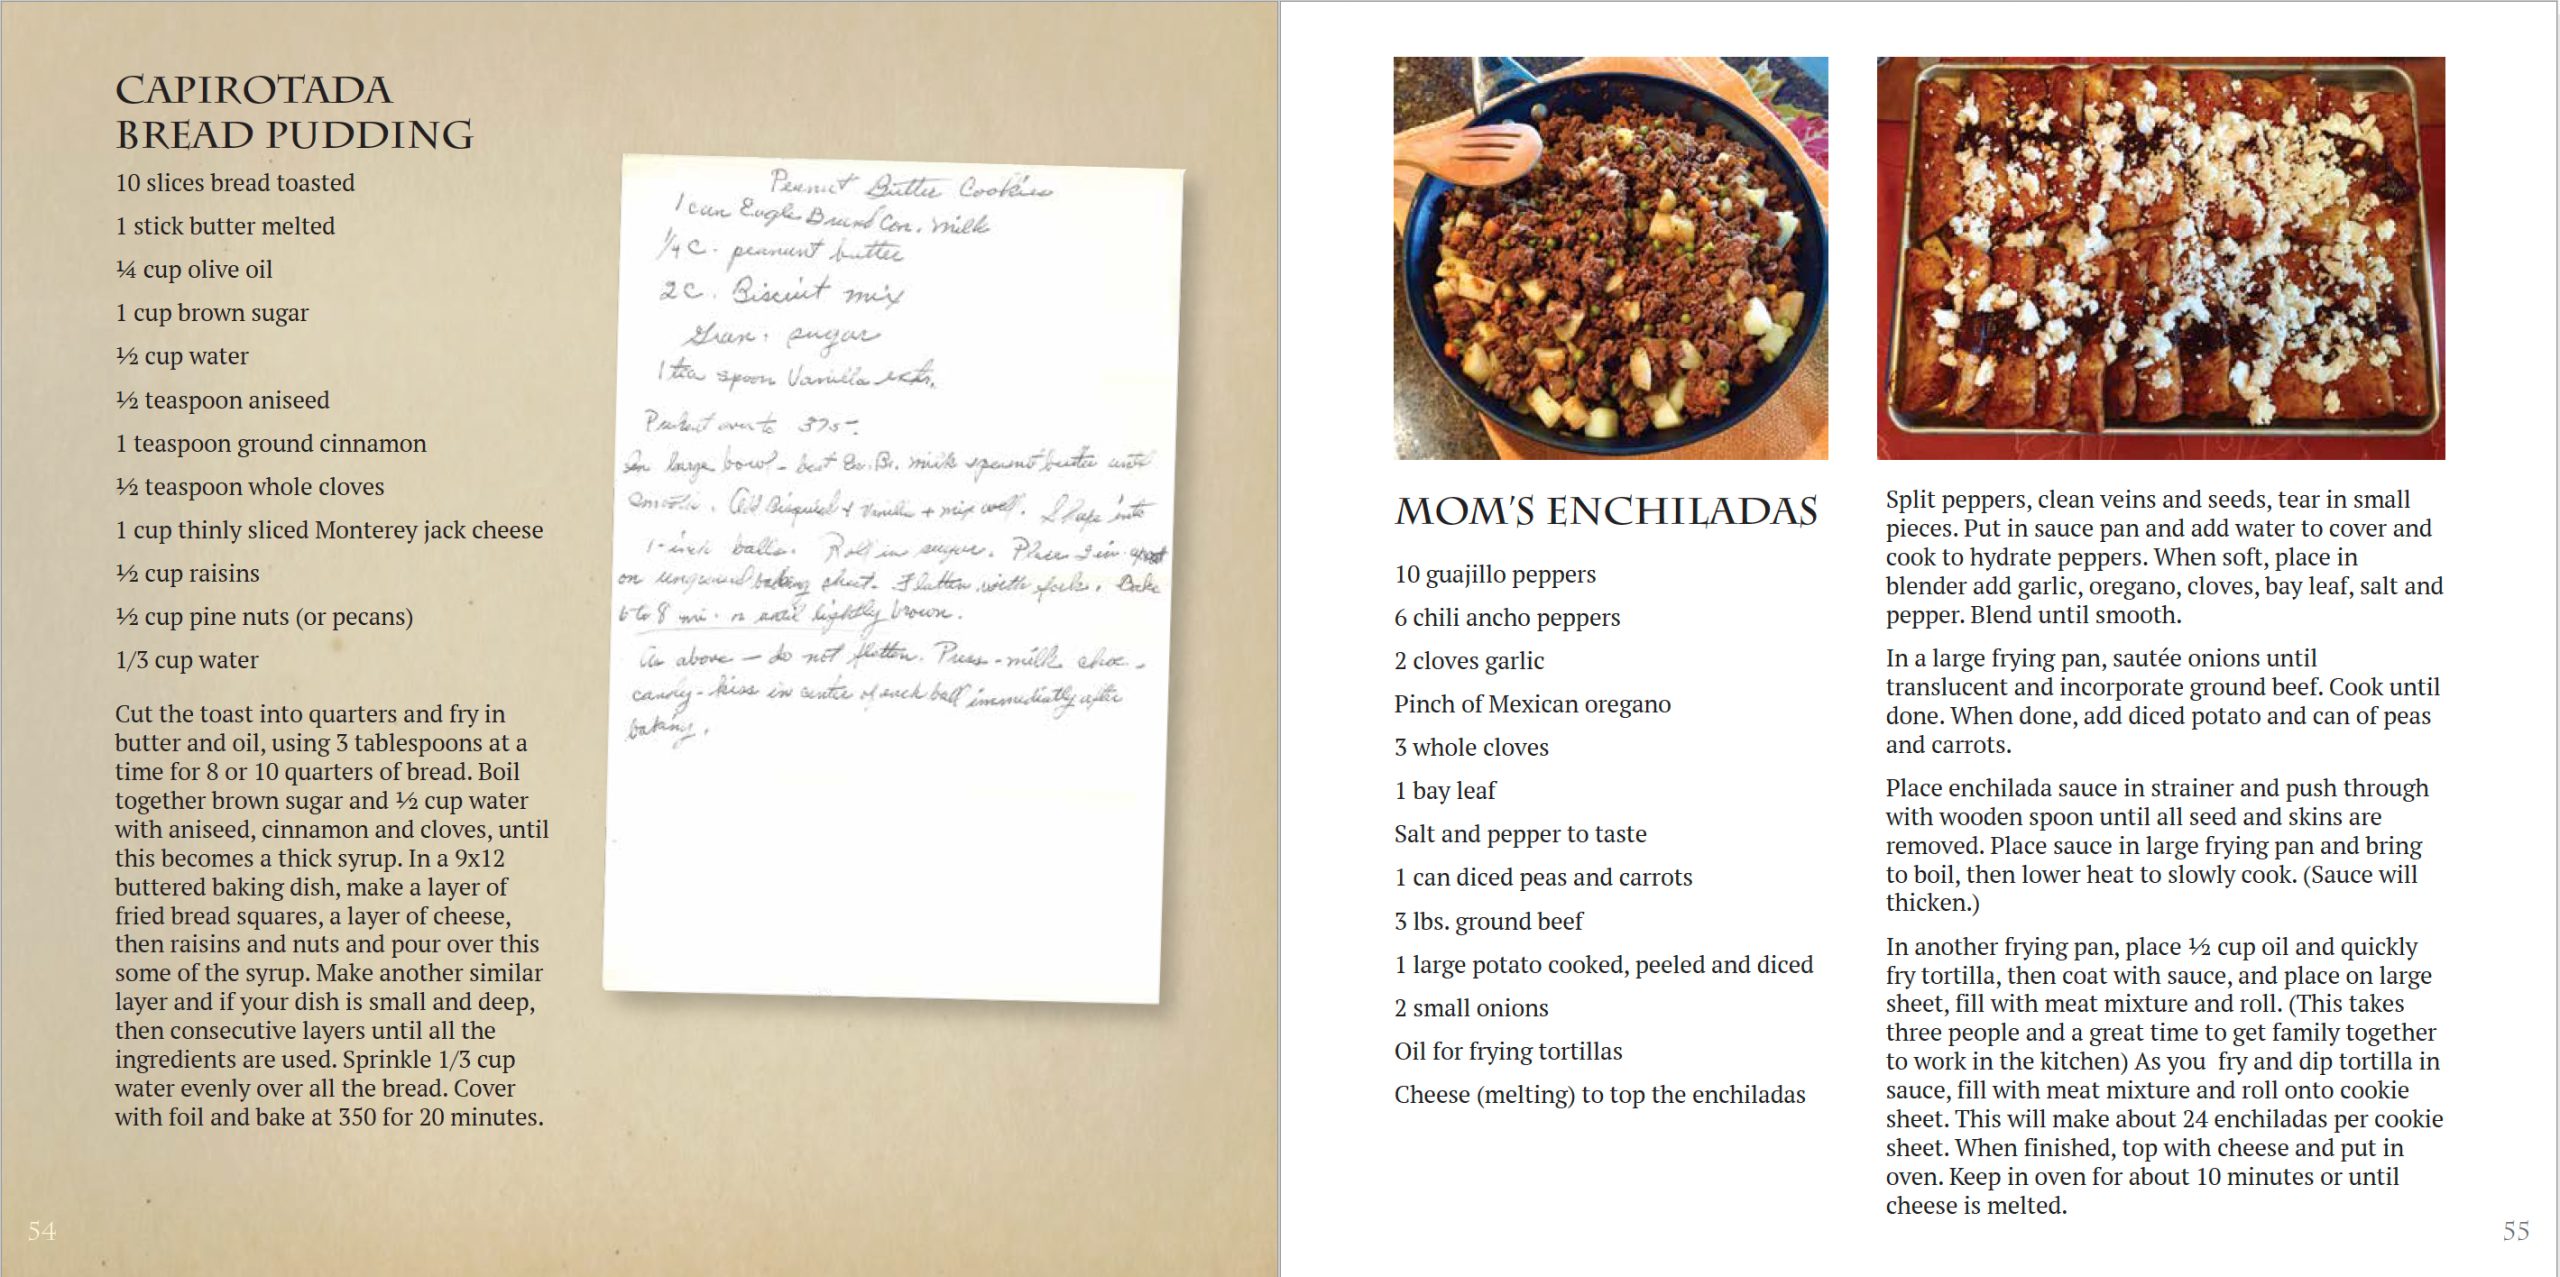 CAPIROTADA
BREAD PUDDING
10 slices bread toasted
1 stick butter melted
¼ cup olive oil
1 cup brown sugar
½ cup water
½ teaspoon aniseed
1 teaspoon ground cinnamon
½ teaspoon whole cloves
1 cup thinly sliced Monterey jack cheese
½ cup raisins
½ cup pine nuts (or pecans)
1/3 cup water
Cut the toast into quarters and fry in
butter and oil, using 3 tablespoons at a
time for 8 or 10 quarters of bread. Boil
together brown sugar and ½ cup water
with aniseed, cinnamon and cloves, until
this becomes a thick syrup. In a 9x12
buttered baking dish, make a layer of
fried bread squares, a layer of cheese,
then raisins and nuts and pour over this
some of the syrup. Make another similar
layer and if your dish is small and deep,
then consecutive layers until all the
ingredients are used. Sprinkle 1/3 cup
water evenly over all the bread. Cover
with foil and bake at 350 for 20 minutes.
54
Peanut Butter Cookies
1 can Eagle Brand Con. milk
¼ C. peanut butter
2 C. Biscuit mix
Gran. sugar
1 tea spoon Vanilla extr.
Preheat oven to 375-
In large bowl - beat Ea. Br. milk + peanut butter until
smooth. Add Bisquick + Vanilla + mix well. Shape into
1-inch balls. Roll in sugar. Place 2 in. apart
on ungreased baking sheet. Flatten with fork. Bake
6 to 8 mi. or until lightly brown.
As above - do not flatten. Press - milk choc -
candy - kiss in center of each ball immediatly after
baking.
MOM'S ENCHILADAS
10 guajillo peppers
6 chili ancho peppers
2 cloves garlic
Pinch of Mexican oregano
3 whole cloves
1 bay leaf
Salt and pepper to taste
1 can diced peas and carrots
3 lbs. ground beef
1 large potato cooked, peeled and diced
2 small onions
Oil for frying tortillas
Cheese (melting) to top the enchiladas
Split peppers, clean veins and seeds, tear in small
pieces. Put in sauce pan and add water to cover and
cook to hydrate peppers. When soft, place in
blender add garlic, oregano, cloves, bay leaf, salt and
pepper. Blend until smooth.
In a large frying pan, sautée onions until
translucent and incorporate ground beef. Cook until
done. When done, add diced potato and can of peas
and carrots.
Place enchilada sauce in strainer and push through
with wooden spoon until all seed and skins are
removed. Place sauce in large frying pan and bring
to boil, then lower heat to slowly cook. (Sauce will
thicken.)
In another frying pan, place ½ cup oil and quickly
fry tortilla, then coat with sauce, and place on large
sheet, fill with meat mixture and roll. (This takes
three people and a great time to get family together
to work in the kitchen) As you fry and dip tortilla in
sauce, fill with meat mixture and roll onto cookie
sheet. This will make about 24 enchiladas per cookie
sheet. When finished, top with cheese and put in
oven. Keep in oven for about 10 minutes or until
cheese is melted.
55